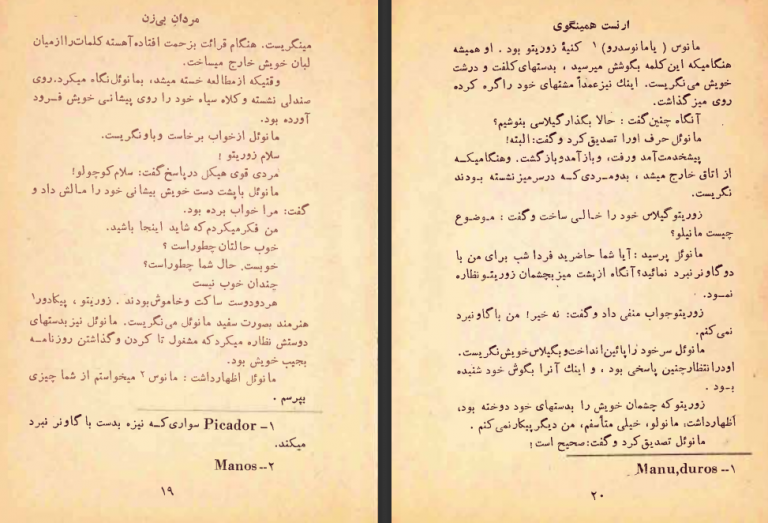 مردان بی‌زن
مینگریست. هنگام قرائت بزحمت افتاده آهسته کلمات را از میان
لبان خویش خارج میساخت.
وقتیکه از مطالعه خسته میشد، بمانوئل نگاه میکرد. روی
صندلی نشسته و کلاه سیاه خود را روی پیشانی خویش فرود
آورده بود.
مانوئل از خواب برخاست و باو نگریست.
سلام زوریتو !
مردی قوی هیکل در پاسخ گفت: سلام کوچولو!
مانوئل با پشت دست خویش پیشانی خود را مالش داد و
گفت: مرا خواب برده بود.
من فکر میکردم که شاید اینجا باشید.
خوب حالتان چطور است ؟
خوبست. حال شما چطور است؟
چندان خوب نیست
هر دو دوست ساکت و خاموش بودند . زوریتو ، پیکادور۱
هنرمند بصورت سفید مانوئل می‌نگریست. مانوئل نیز بدستهای
دوستش نظاره میکرد که مشغول تا کردن و گذاشتن روزنامه
بجیب خویش بود.
مانوئل اظهار داشت : مانوس ۲ میخواستم از شما چیزی
بپرسم .
۱– Picador سواری که نیزه بدست با گاو نر نبرد
میکند.
۲–– Manos
۱۹
ارنست همینگوی
مانوس ( یا مانوسدرو) ۱ کنیهٔ زوریتو بود . او همیشه
هنگامیکه این کلمه بگوشش میرسید ، بدستهای کلفت و درشت
خویش می‌نگریست. اینك نیز عمداً مشتهای خود را گره کرده
روی میز گذاشت.
آنگاه چنین گفت : حالا بگذار گیلاسی بنوشیم؟
مانوئل حرف او را تصدیق کرد و گفت: البته!
پیشخدمت آمد و رفت، و باز آمد و باز گشت. و هنگامیکه
از اتاق خارج میشد ، بدو مردی که در سر میز نشسته بودند
نگریست.
زوریتو گیلاس خود را خالی ساخت و گفت : موضوع
چیست مانیلو؟
مانوئل پرسید : آیا شما حاضرید فردا شب برای من با
دو گاو نر نبرد نمائید؟ آنگاه از پشت میز بچشمان زوریتو نظاره
نمود.
زوریتو جواب منفی داد و گفت: نه خیر! من با گاو نبرد
نمی کنم.
مانوئل سر خود را پائین انداخت و بگیلاس خویش نگریست.
او در انتظار چنین پاسخی بود ، و اینك آنرا بگوش خود شنیده
بود .
زوریتو که چشمان خویش را بدستهای خود دوخته بود،
اظهار داشت: مانولو، خیلی متأسفم، من دیگر پیکار نمی کنم .
مانوئل تصدیق کرد و گفت: صحیح است!
۱–– Manu,duros
۲۰